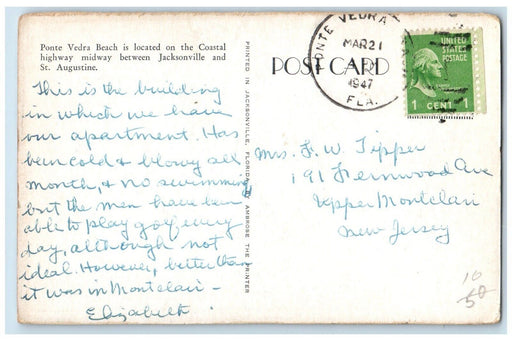 Ponte Vedra Beach is located on the Coastal
highway midway between Jacksonville and
St. Augustine.
This is the building
in which we have
our apartment. Has
been cold & blowy all
month, & no swimming
but the men have been
able to play golf every
day, although not
ideal. However, better than
it was in Montclair -
Elizabeth
PRINTED IN JACKSONVILLE, FLORIDA, BY AMBROSE THE PRINTER
POST CARD
PONTE VEDRA
MAR 21
1947
FLA.
UNITED
STATES
POSTAGE
1 CENT 1
Mrs. F. W. Tipper
191 Fernwood Ave
Upper Montclair
New Jersey
10
50